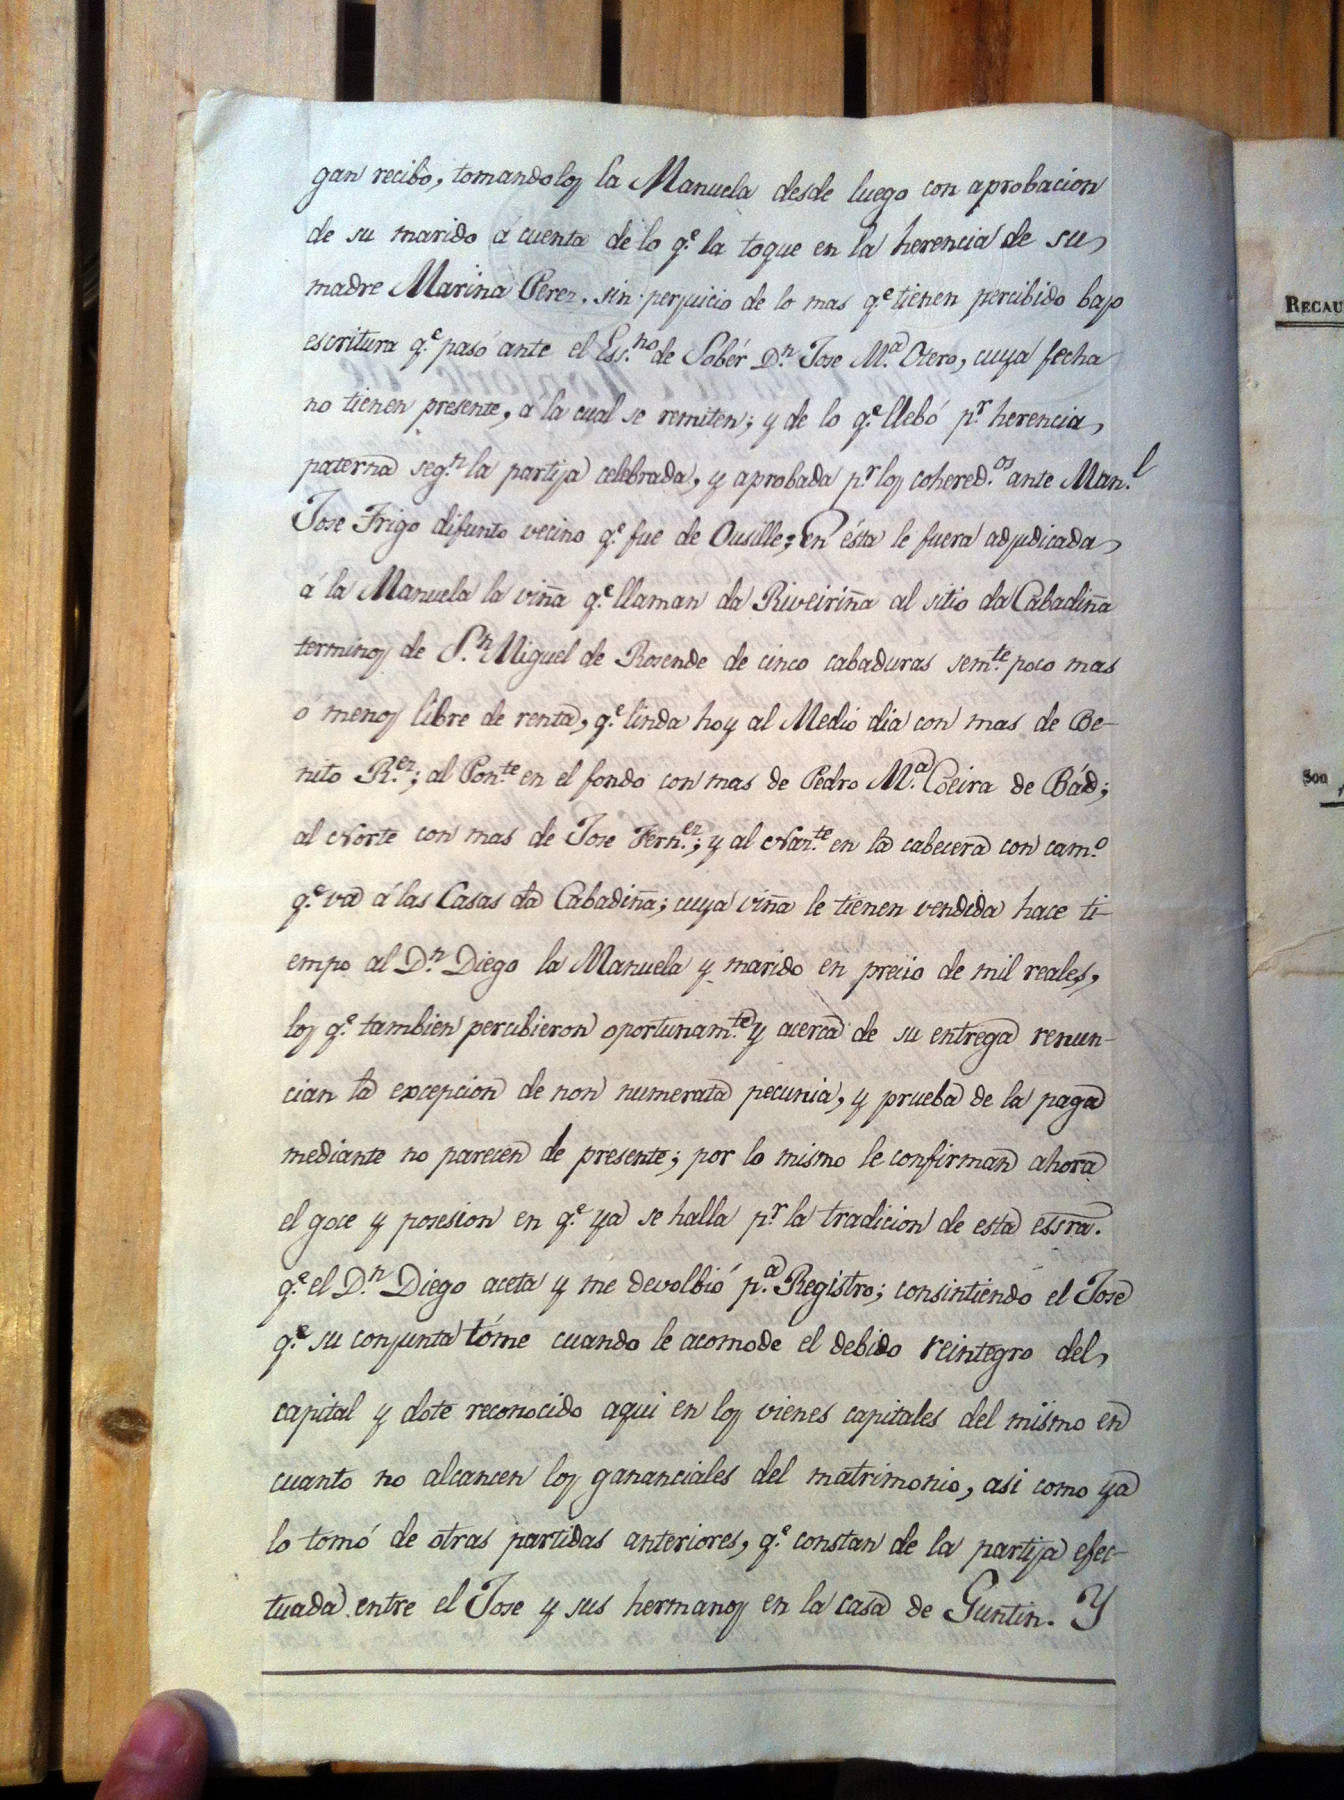 gan recibo, tomandolos la Manuela desde luego con aprobacion
de su marido á cuenta de lo q.e la toque en la herencia de su
madre Marina Perez, sin perjuicio de lo mas q.e tienen percibido bajo
escritura q.e pasó ante el Ess.no de Sobér D.n Jose M.a Otero, cuya fecha
no tienen presente, a la cual se remiten; y de lo q.e llebó p.r herencia
paterna seg.n la partija celebrada, y aprobada p.r los cohered.os ante Man.l
Jose Trigo difunto vecino q.e fue de Ousille; en ésta le fuera adjudicada
á la Manuela la viña q.e llaman da Riveiriña al sitio da Cabadiña
terminos de S.n Miguel de Rosende de cinco cabaduras sem.te poco mas
ó menos libre de renta, q.e linda hoy al Medio dia con mas de Be-
nito R.ez; al Pon.te en el fondo con mas de Pedro M.a Coeira de Bád;
al Norte con mas de Jose Fern.ez; y al Nax.te en la cabecera con cam.o
q.e va á las Casas da Cabadiña; cuya viña le tienen vendida hace ti-
empo al D.n Diego la Manuela y marido en precio de mil reales,
los q.e tambien percibieron oportunam.te y acerca de su entrega renun-
cian la excepcion de non numerata pecunia, y prueba de la paga
mediante no parecen de presente; por lo mismo le confirman ahora
el goce y posesion en q.e ya se halla p.r la tradicion de esta essra.
q.e el D.n Diego aceta y me devolbió p.a Registro; consintiendo el Jose
q.e su conjunta tóme cuando le acomode el debido reintegro del
capital y dote reconocido aqui en los vienes capitales del mismo en
cuanto no alcancen los gananciales del matrimonio, asi como ya
lo tomó de otras partidas anteriores, q.e constan de la partija efec-
tuada entre el Jose y sus hermanos en la casa de Guntin. Y
RECAU
Son